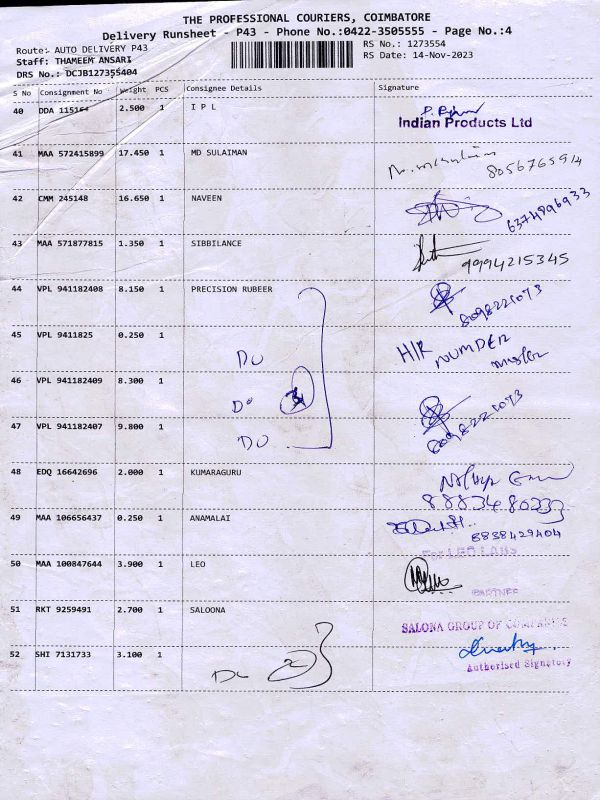 THE PROFESSIONAL COURIERS, COIMBATORE
Delivery Runsheet - P43 - Phone No.:0422-3505555 - Page No.:4
Route: AUTO DELIVERY P43 RS No.: 1273554
Staff: THAMEEM ANSARI RS Date: 14-Nov-2023
DRS No.: DCJB127355404
S No Consignment No Weight PCS Consignee Details Signature
40 DDA 2.500 1 I P L
Indian Products Ltd
41 MAA 572415899 17.450 1 MD SULAIMAN 8056765914
42 CMM 245148 16.650 1 NAVEEN 6374896933
43 MAA 571877815 1.350 1 SIBBILANCE 9994215345
44 VPL 941182408 8.150 1 PRECISION RUBEER 8098221073
45 VPL 9411825 0.250 1 DO H/R NUMBER
46 VPL 941182409 8.300 1 DO 8098221073
47 VPL 941182407 9.800 1 DO
48 EDQ 16642696 2.000 1 KUMARAGURU
49 MAA 106656437 0.250 1 ANAMALAI 8838429404
For LEO LABS
50 MAA 100847644 3.900 1 LEO
PARTNER
51 RKT 9259491 2.700 1 SALOONA
SALONA GROUP OF COMPANIES
52 SHI 7131733 3.100 1
Authorised Signatory